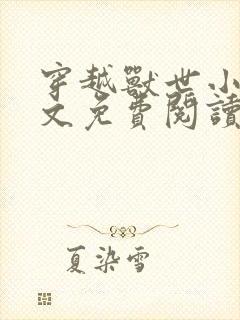 穿越獸世小
文免費閱讀
夏染雪